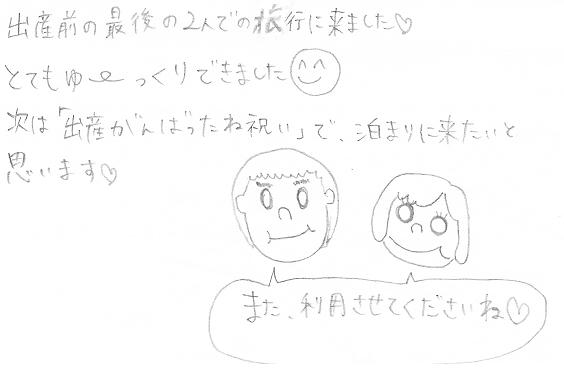 出産前の最後の2人での旅行に来ました♡
とてもゆ〜っくりできました
次は「出産がんばったね祝い」で、泊まりに来たいと
思います♡
また、利用させてくださいね♡